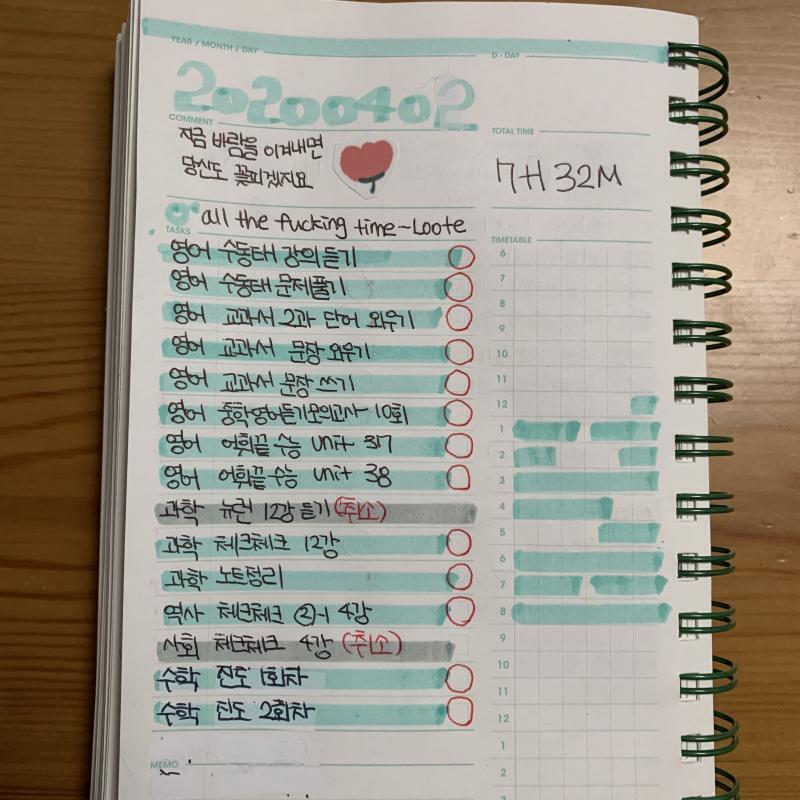 YEAR / MONTH / DAY
D - DAY
20200402
COMMENT
지금 바람을 이겨내면
당신도 꽃피겠지요
TOTAL TIME
7H 32M
all the fucking time-Loote
TASKS
영어 수동태 강의듣기
영어 수동태 문제풀기
영어 교과서 2과 단어 외우기
영어 교과서 문장 외우기
영어 교과서 문장 쓰기
영어 중학영어듣기모의고사 10회
영어 어휘끝 수능 unit 37
영어 어휘끝 수능 unit 38
과학 뉴런 12강 듣기 (취소)
과학 체크체크 12강
과학 노트정리
역사 체크체크 ②-1 4강
사회 체크체크 4강 (취소)
수학 진도 1회차
수학 진도 2회차
MEMO
TIMETABLE
6
7
8
9
10
11
12
1
2
3
4
5
6
7
8
9
10
11
12
1
2